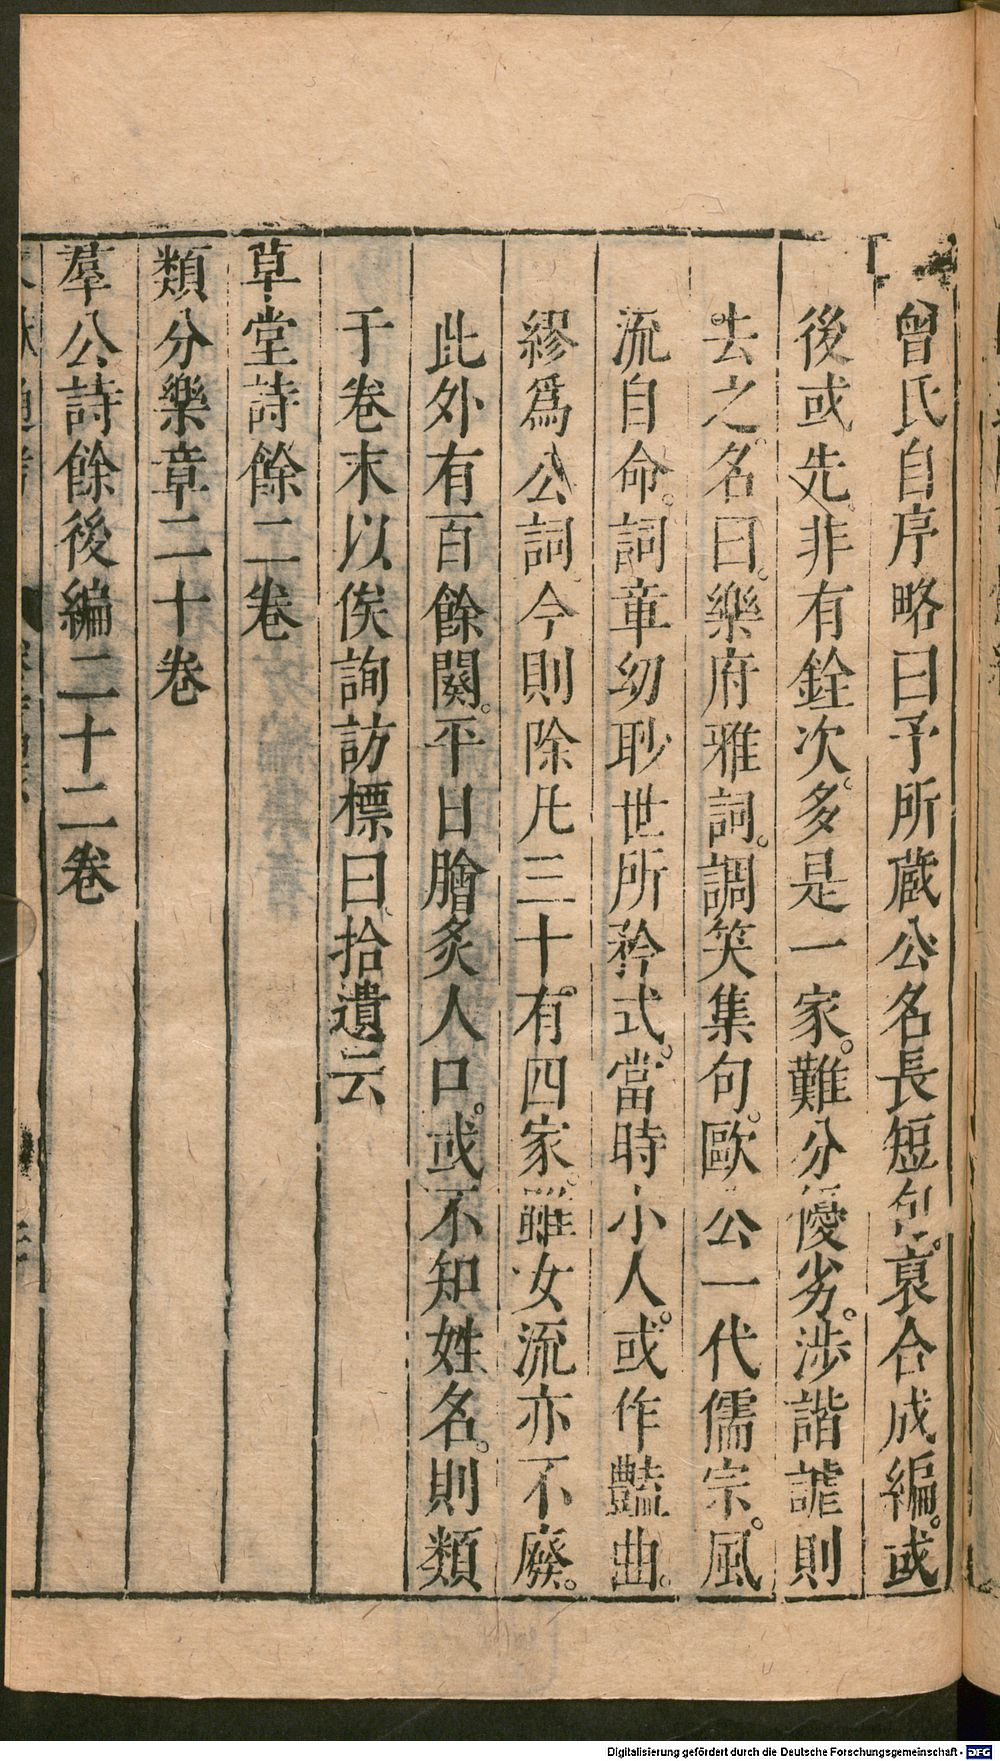 曾氏自序略曰予所藏公名長短句。裒合成編。或
後或先。非有銓次。多是一家。難分優劣。涉諧謔則
去之。名曰。樂府雅詞。調笑集句。歐公一代儒宗。風
流自命。詞章幼眇世所矜式。當時小人。或作豔曲。
繆爲公詞。今則除凡三十。有四家。雖女流亦不廢。
此外有百餘闋。平日膾炙人口。或不知姓名。則類
于卷末以俟詢訪標曰。拾遺云
草堂詩餘二卷
類分樂章二十卷
羣公詩餘後編二十二卷
Digitalisierung gefördert durch die Deutsche Forschungsgemeinschaft - DFG